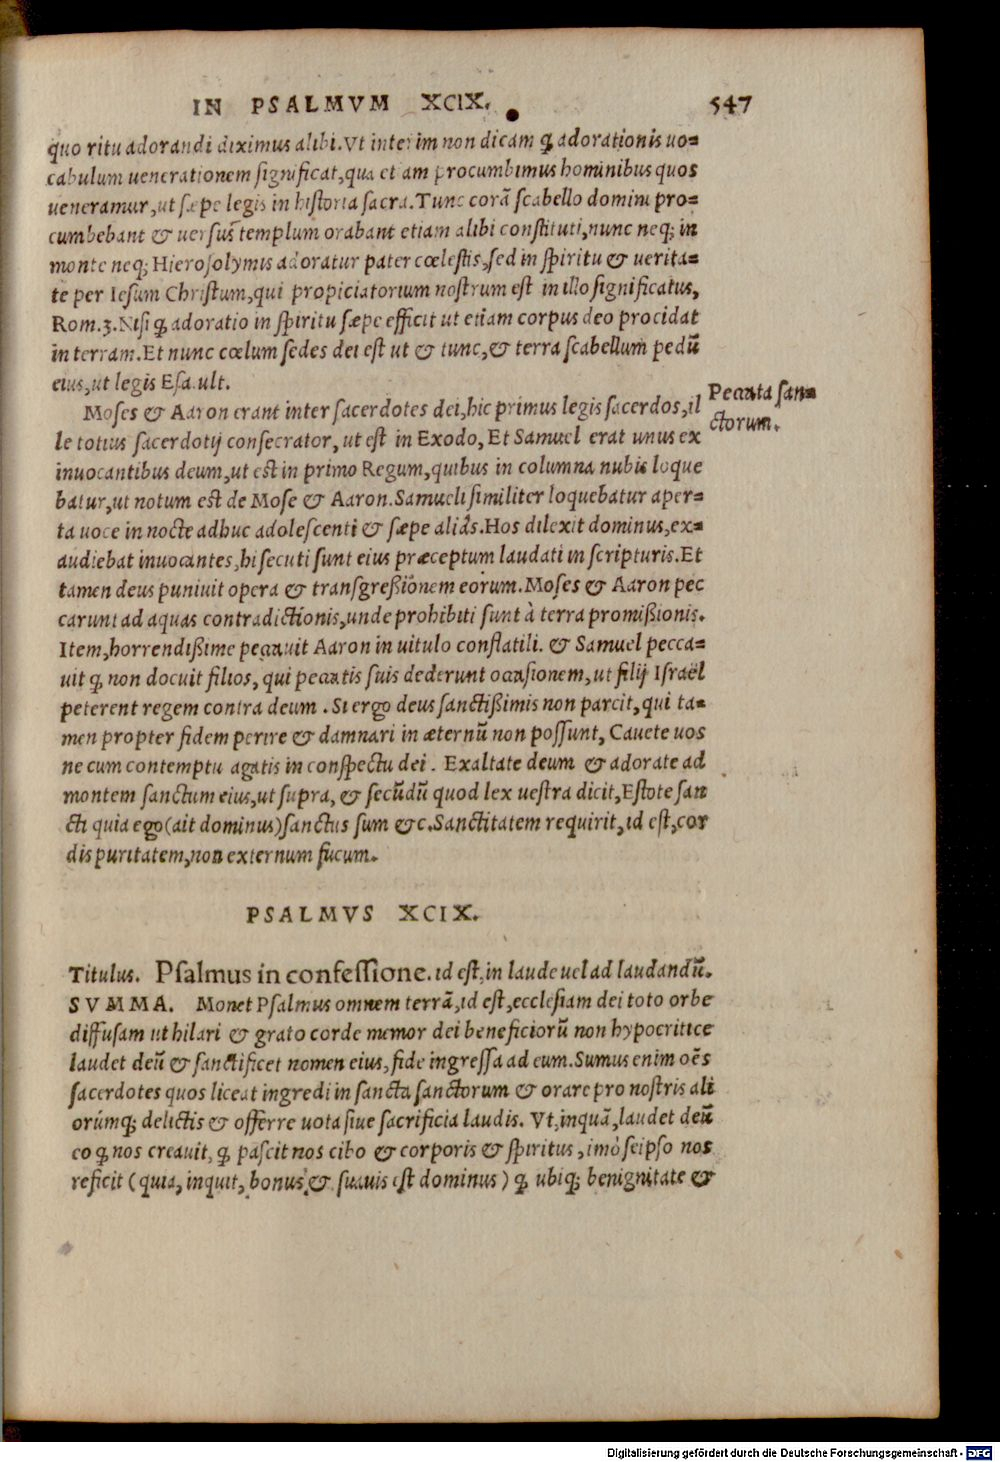 IN PSALMVM XCIX. 547
quo ritu adorandi diximus alibi. Vt interim non dicam ꝙ adorationis uo=
cabulum uenerationem significat, qua etiam procumbimus hominibus quos
ueneramur, ut sæpe legis in historia sacra. Tunc corã scabello domini pro=
cumbebant & uersus templum orabant etiam alibi constituti, nunc neq; in
monte neq; Hierosolymis adoratur pater cœlestis, sed in spiritu & uerita=
te per Iesum Christum, qui propiciatorium nostrum est in illo significatus,
Rom. 3. Nisi ꝙ adoratio in spiritu sæpe efficit ut etiam corpus deo procidat
in terram. Et nunc cœlum sedes dei est ut & tunc, & terra scabellum pedũ
eius, ut legis Esa. ult.
Moses & Aaron erant inter sacerdotes dei, hic primus legis sacerdos, il
le totius sacerdotij consecrator, ut est in Exodo, Et Samuel erat unus ex
inuocantibus deum, ut est in primo Regum, quibus in columna nubis loque
batur, ut notum est de Mose & Aaron. Samueli similiter loquebatur aper=
ta uoce in nocte adhuc adolescenti & sæpe aliâs. Hos dilexit dominus, ex=
audiebat inuocantes, hi secuti sunt eius præceptum laudati in scripturis. Et
tamen deus puniuit opera & transgreßionem eorum. Moses & Aaron pec
carunt ad aquas contradictionis, unde prohibiti sunt à terra promißionis.
Item, horrendißime peccauit Aaron in uitulo conflatili. & Samuel pecca=
uit ꝙ non docuit filios, qui peccatis suis dederunt occasionem, ut filij Israël
peterent regem contra deum. Si ergo deus sanctißimis non parcit, qui ta=
men propter fidem perire & damnari in æternũ non possunt, Cauete uos
ne cum contemptu agatis in conspectu dei. Exaltate deum & adorate ad
montem sanctum eius, ut supra, & secũdũ quod lex uestra dicit, Estote san
cti quia ego (ait dominus) sanctus sum &c. Sanctitatem requirit, id est, cor
dis puritatem, non externum fucum.
Peccata san=
ctorum.
PSALMVS XCIX.
Titulus. Psalmus in confessione. id est, in laude uel ad laudandũ.
SVMMA. Monet Psalmus omnem terrã, id est, ecclesiam dei toto orbe
diffusam ut hilari & grato corde memor dei beneficiorũ non hypocritice
laudet deũ & sanctificet nomen eius, fide ingressa ad eum. Sumus enim oẽs
sacerdotes quos liceat ingredi in sancta sanctorum & orare pro nostris ali
orúmq; delictis & offerre uota siue sacrificia laudis. Vt, inquã, laudet deũ
eo ꝙ nos creauit, ꝙ pascit nos cibo & corporis & spiritus, imò seipso nos
reficit (quia, inquit, bonus & suauis est dominus) ꝙ ubiq; benignitate &
Digitalisierung gefördert durch die Deutsche Forschungsgemeinschaft - DFG